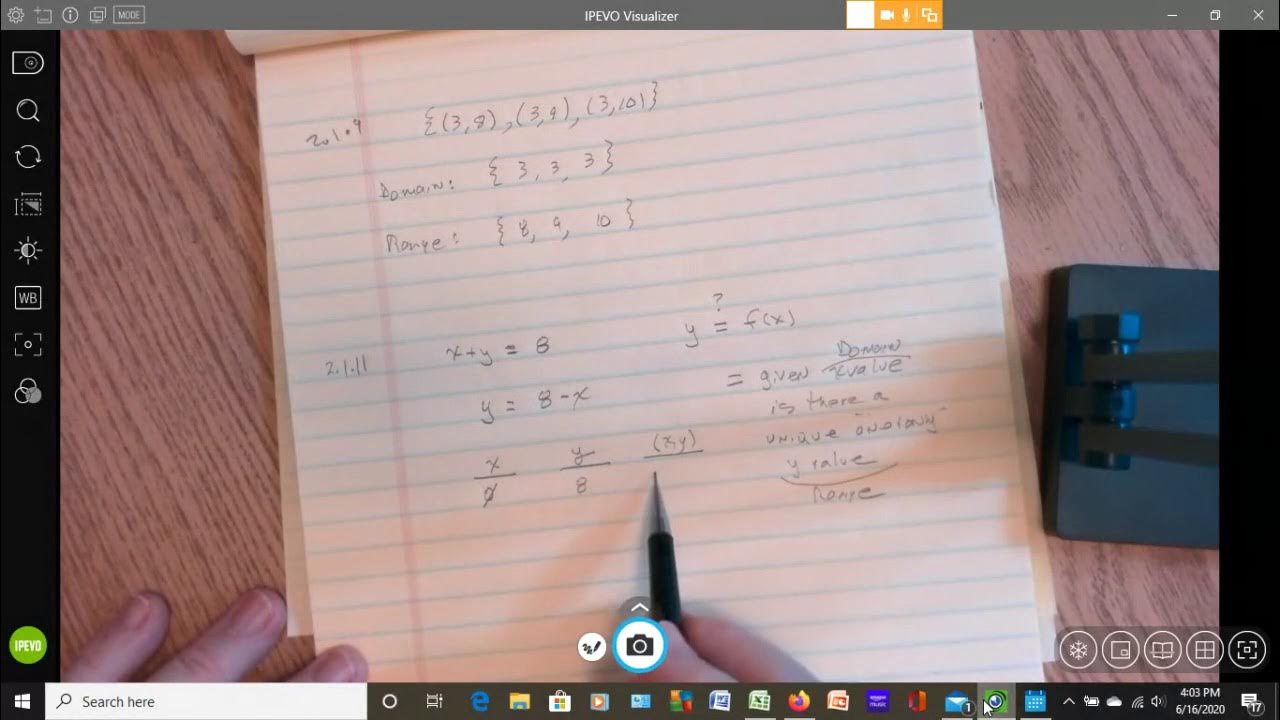 MODE
IPEVO Visualizer
2.1.9 {(3,8),(3,9),(3,10)}
Domain: {3, 3, 3}
Range: {8, 9, 10}
2.1.11 x+y = 8
y = 8-x
x y (x,y)
0 8
?
y = f(x)
= given Domain
xvalue
is there a
unique "one only"
y value
Range
WB
IPEVO
Search here
amazon music
1
4:03 PM
6/16/2020
17